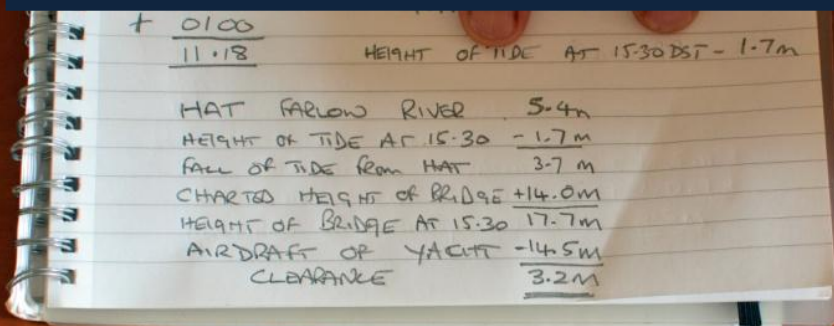 + 0100
11.18
HEIGHT OF TIDE AT 15.30 DST - 1.7m
HAT FARLOW RIVER 5.4m
HEIGHT OF TIDE AT 15.30 - 1.7 m
FALL OF TIDE FROM HAT 3.7 m
CHARTED HEIGHT OF BRIDGE +14.0m
HEIGHT OF BRIDGE AT 15.30 17.7m
AIRDRAFT OF YACHT -14.5m
CLEARANCE 3.2m